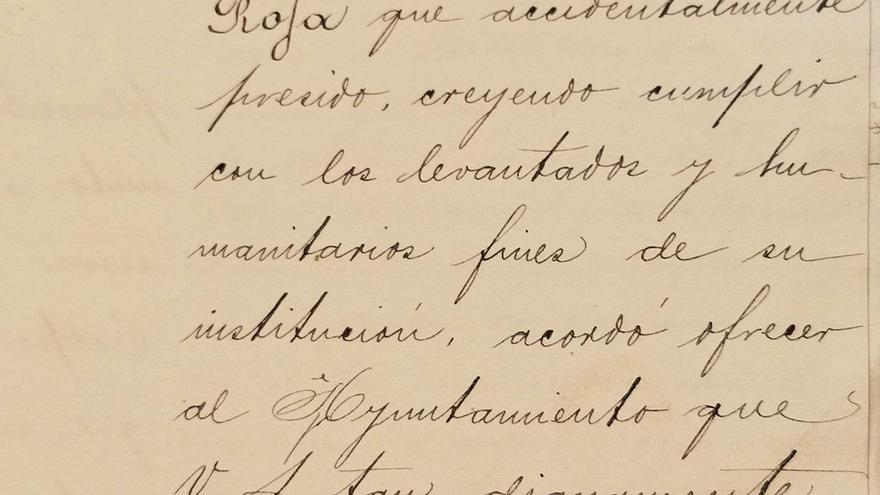 Roja que accidentalmente
presido, creyendo cumplir
con los levantados y hu-
manitarios fines de su
institución, acordó ofrecer
al Ayuntamiento que
V. S. tan dignamente